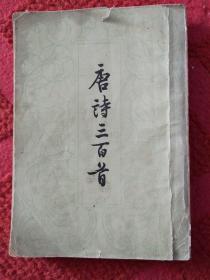 唐诗三百首